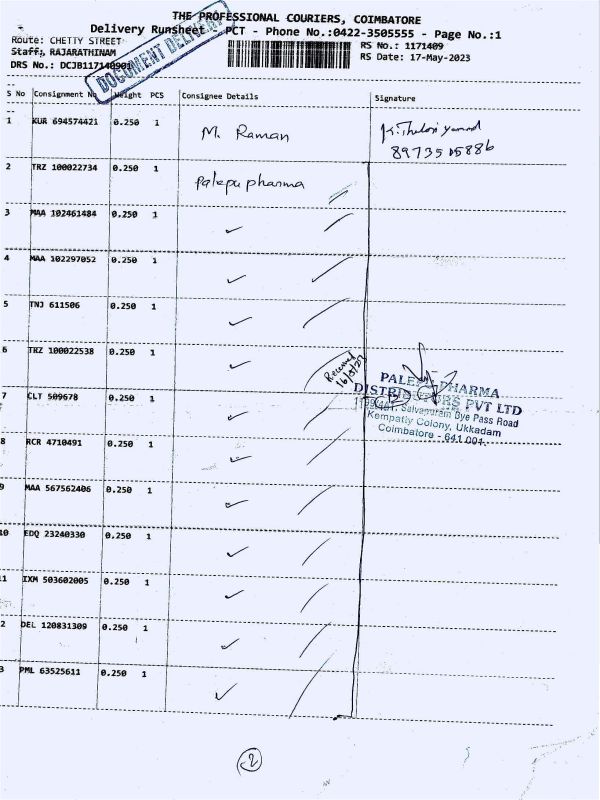 THE PROFESSIONAL COURIERS, COIMBATORE
Delivery Runsheet - PCT - Phone No.:0422-3505555 - Page No.:1
Route: CHETTY STREET
RS No.: 1171409
Staff: RAJARATHINAM
RS Date: 17-May-2023
DRS No.: DCJB117140901
DOCUMENT DELIVERY
S No Consignment No Weight PCS Consignee Details Signature
1 KUR 694574421 0.250 1 M. Raman
8973515886
2 TRZ 100022734 0.250 1 Palepu pharma
3 MAA 102461484 0.250 1
4 MAA 102297052 0.250 1
5 TNJ 611506 0.250 1
6 TRZ 100022538 0.250 1
Received
16/5/23
PALEPU PHARMA
DISTRIBUTERS PVT LTD
Selvapuram Bye Pass Road
Kempatty Colony, Ukkadam
Coimbatore - 641 001.
7 CLT 509678 0.250 1
8 RCR 4710491 0.250 1
9 MAA 567562406 0.250 1
10 EDQ 23240330 0.250 1
11 IXM 503602005 0.250 1
2 DEL 120831309 0.250 1
3 PML 63525611 0.250 1
2